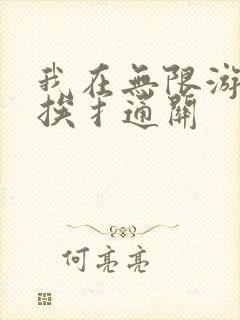 我在無限游
挨扌通關
何亮亮